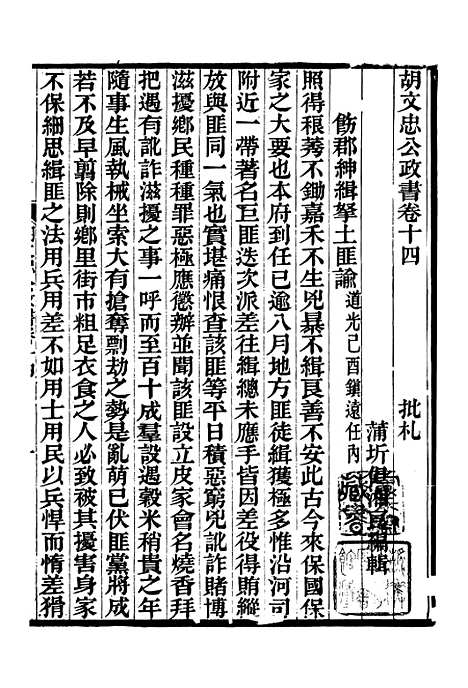 胡文忠公政書卷十四
批札
蒲圻但湘良編輯
飭郡紳緝拏土匪諭 道光己酉鎮遠任內
照得稂莠不鋤嘉禾不生兇暴不緝良善不安此古今來保國保
家之大要也本府到任已逾八月地方匪徒緝獲極多惟沿河司
附近一帶著名巨匪迭次派差往緝總未應手皆因差役得賄縱
放與匪同一氣也實堪痛恨查該匪等平日積惡窮兇訛詐賭博
滋擾鄉民種種罪惡極應懲辦並聞該匪設立皮家會名燒香拜
把遇有訛詐滋擾之事一呼而至百十成羣設遇穀米稍貴之年
隨事生風執械坐索大有搶奪剽劫之勢是亂萌已伏匪黨將成
若不及早翦除則鄉里街市粗足衣食之人必致被其擾害身家
不保細思緝匪之法用兵用差不如用士用民以兵悍而惰差猾